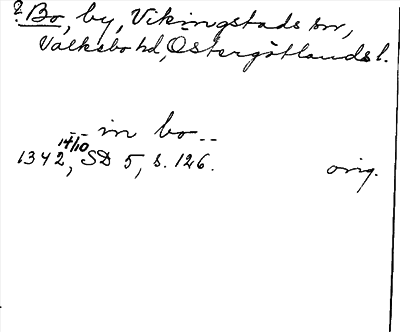 ? Bo, by, Vikingstads sn,
Valkebo hd, Östergötlands l.
in bo
14/10
1342, SD 5, s. 126. orig.